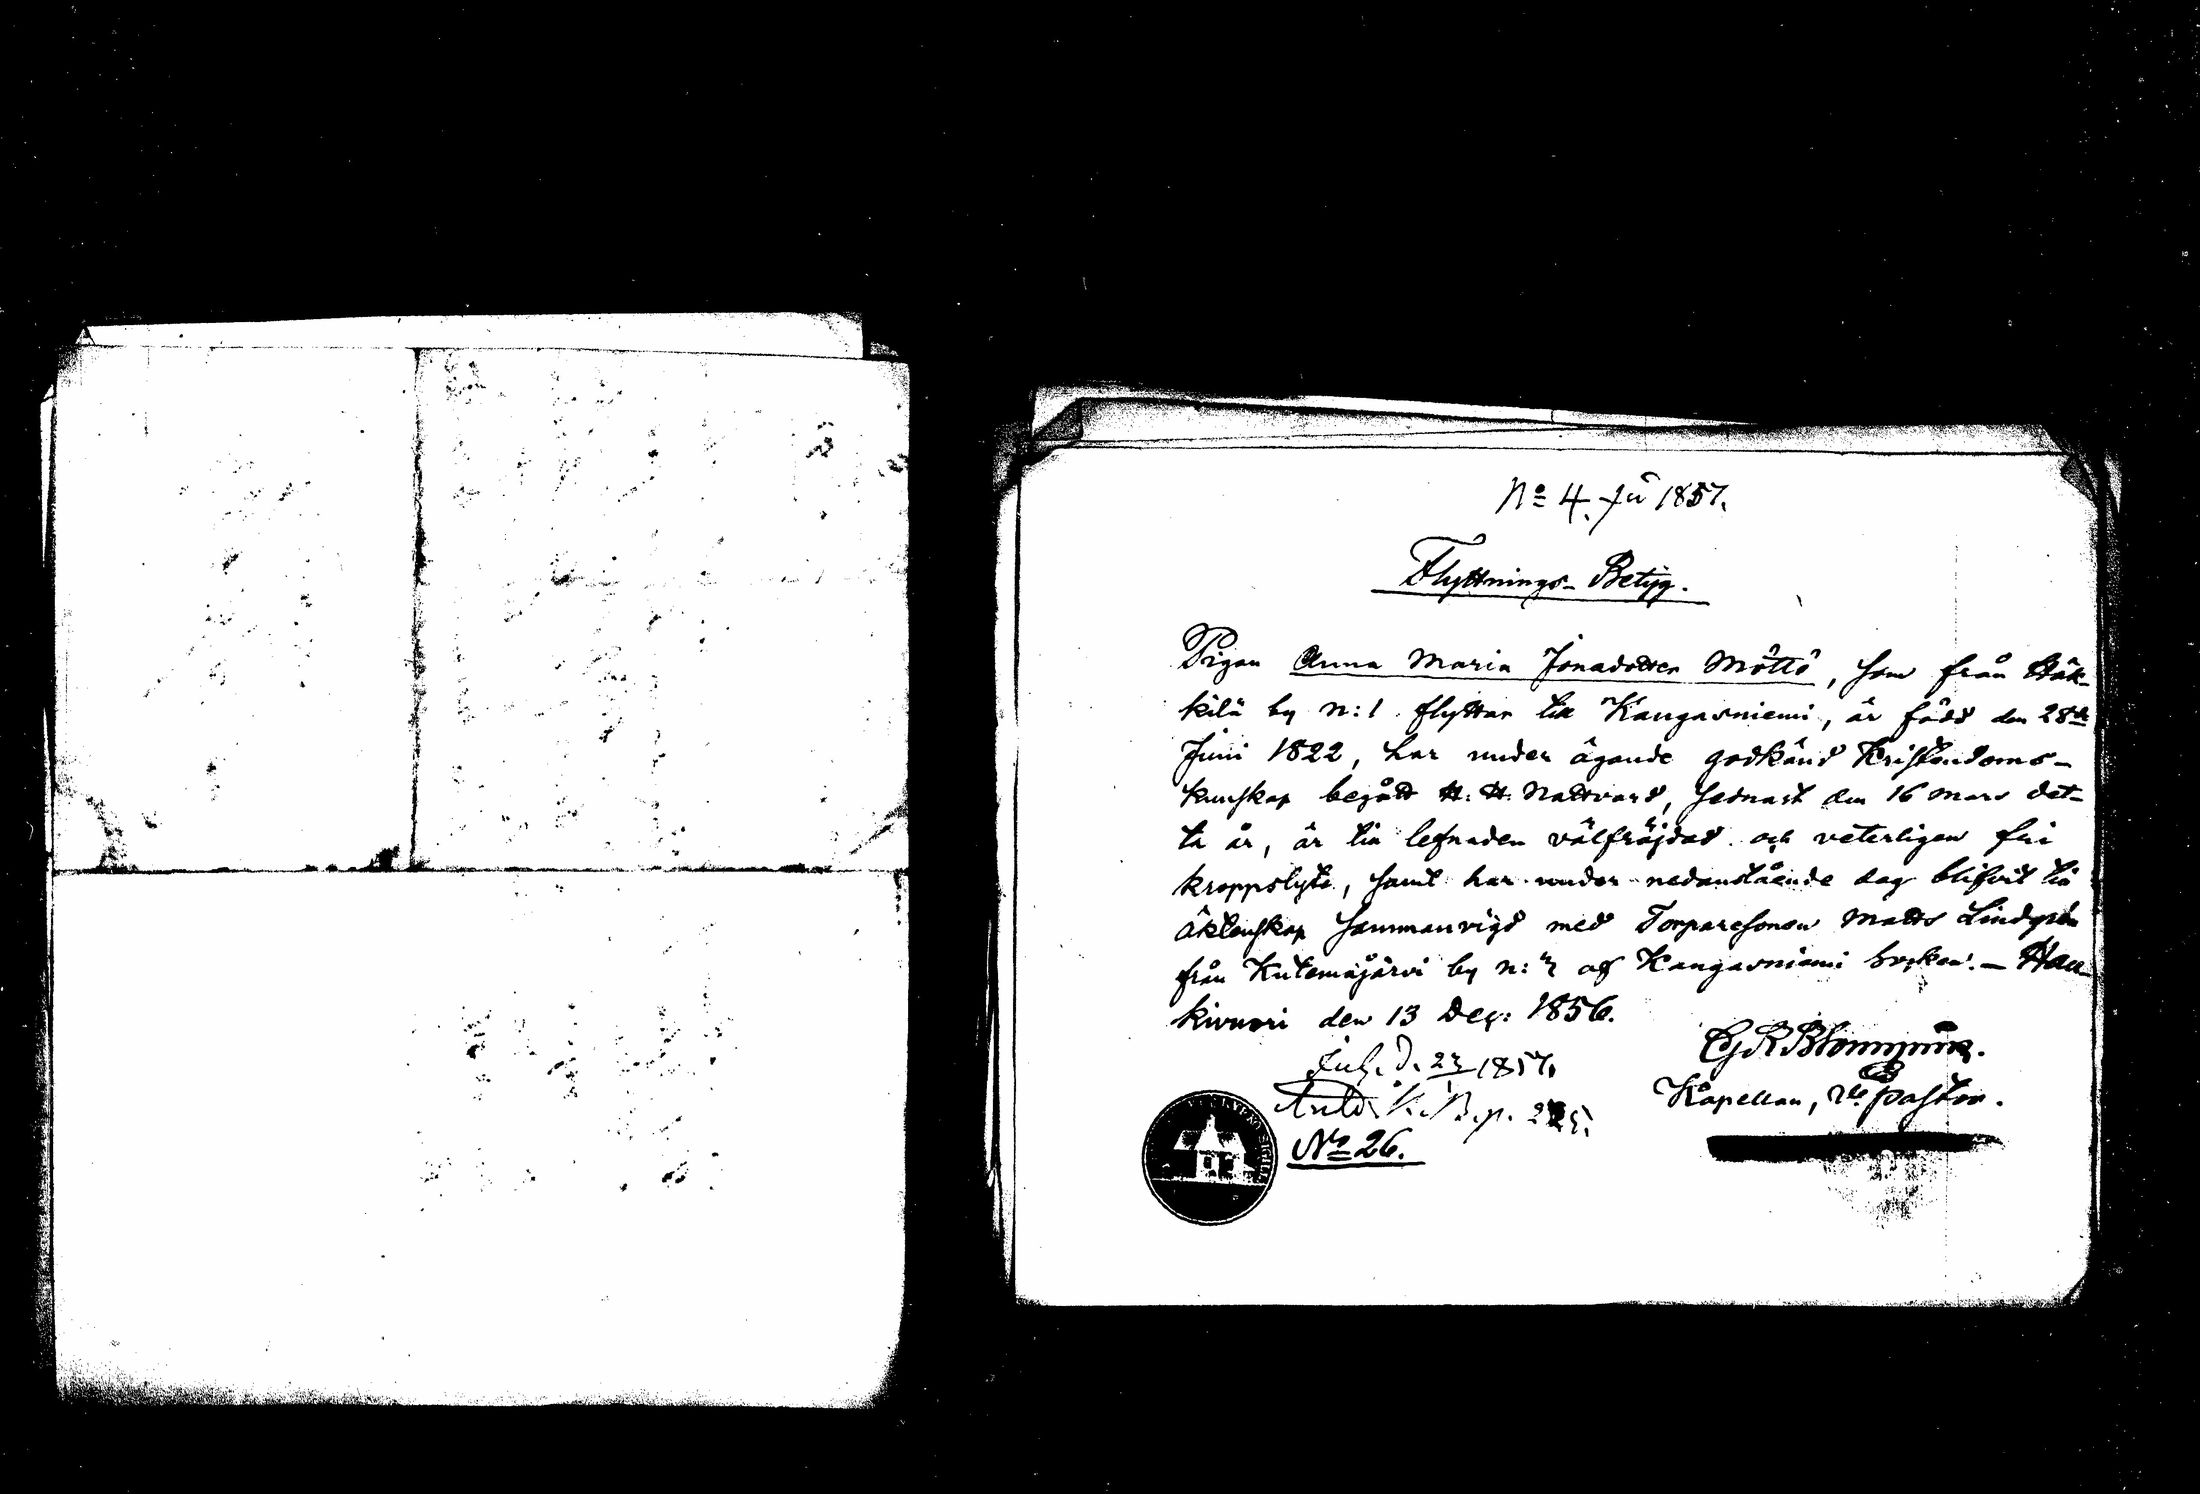 No 4. fu 1857.
Flyttnings-Betyg.
Pigan Anna Maria Jonadotter Möttö, som från Häk-
kilä by n:1 flyttar till Kangasniemi, är född den 28de
Juni 1822, har under ägande godkänd Kristendoms-
kunskap begått H. H. Nattvard, sednast den 16 Mars det-
ta år, är till lefnaden välfräjdad och veterligen fri
kroppslyte, samt har under nedanstående dag blifvit till
äktenskap sammanvigd med Torparesonen Matts Lindgrén
från Kutemajärvi by n: 2 af Kangasniemi Socken. — Hau-
kivuori den 13 Dec: 1856.
Kapellan, v. pastor.
d. 23 1857.
K. B. p.
No 26.